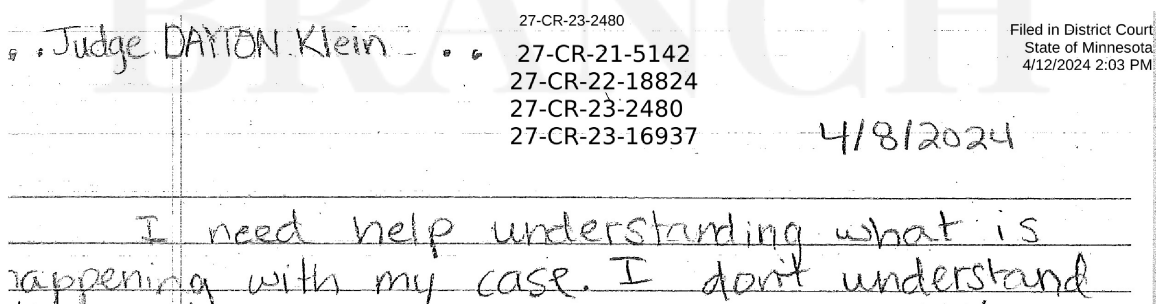 27-CR-23-2480
Filed in District Court
State of Minnesota
4/12/2024 2:03 PM
Judge DAYTON Klein
27-CR-21-5142
27-CR-22-18824
27-CR-23-2480
27-CR-23-16937
4/8/2024
BRANCH
I need help understanding what is
happening with my case. I don't understand